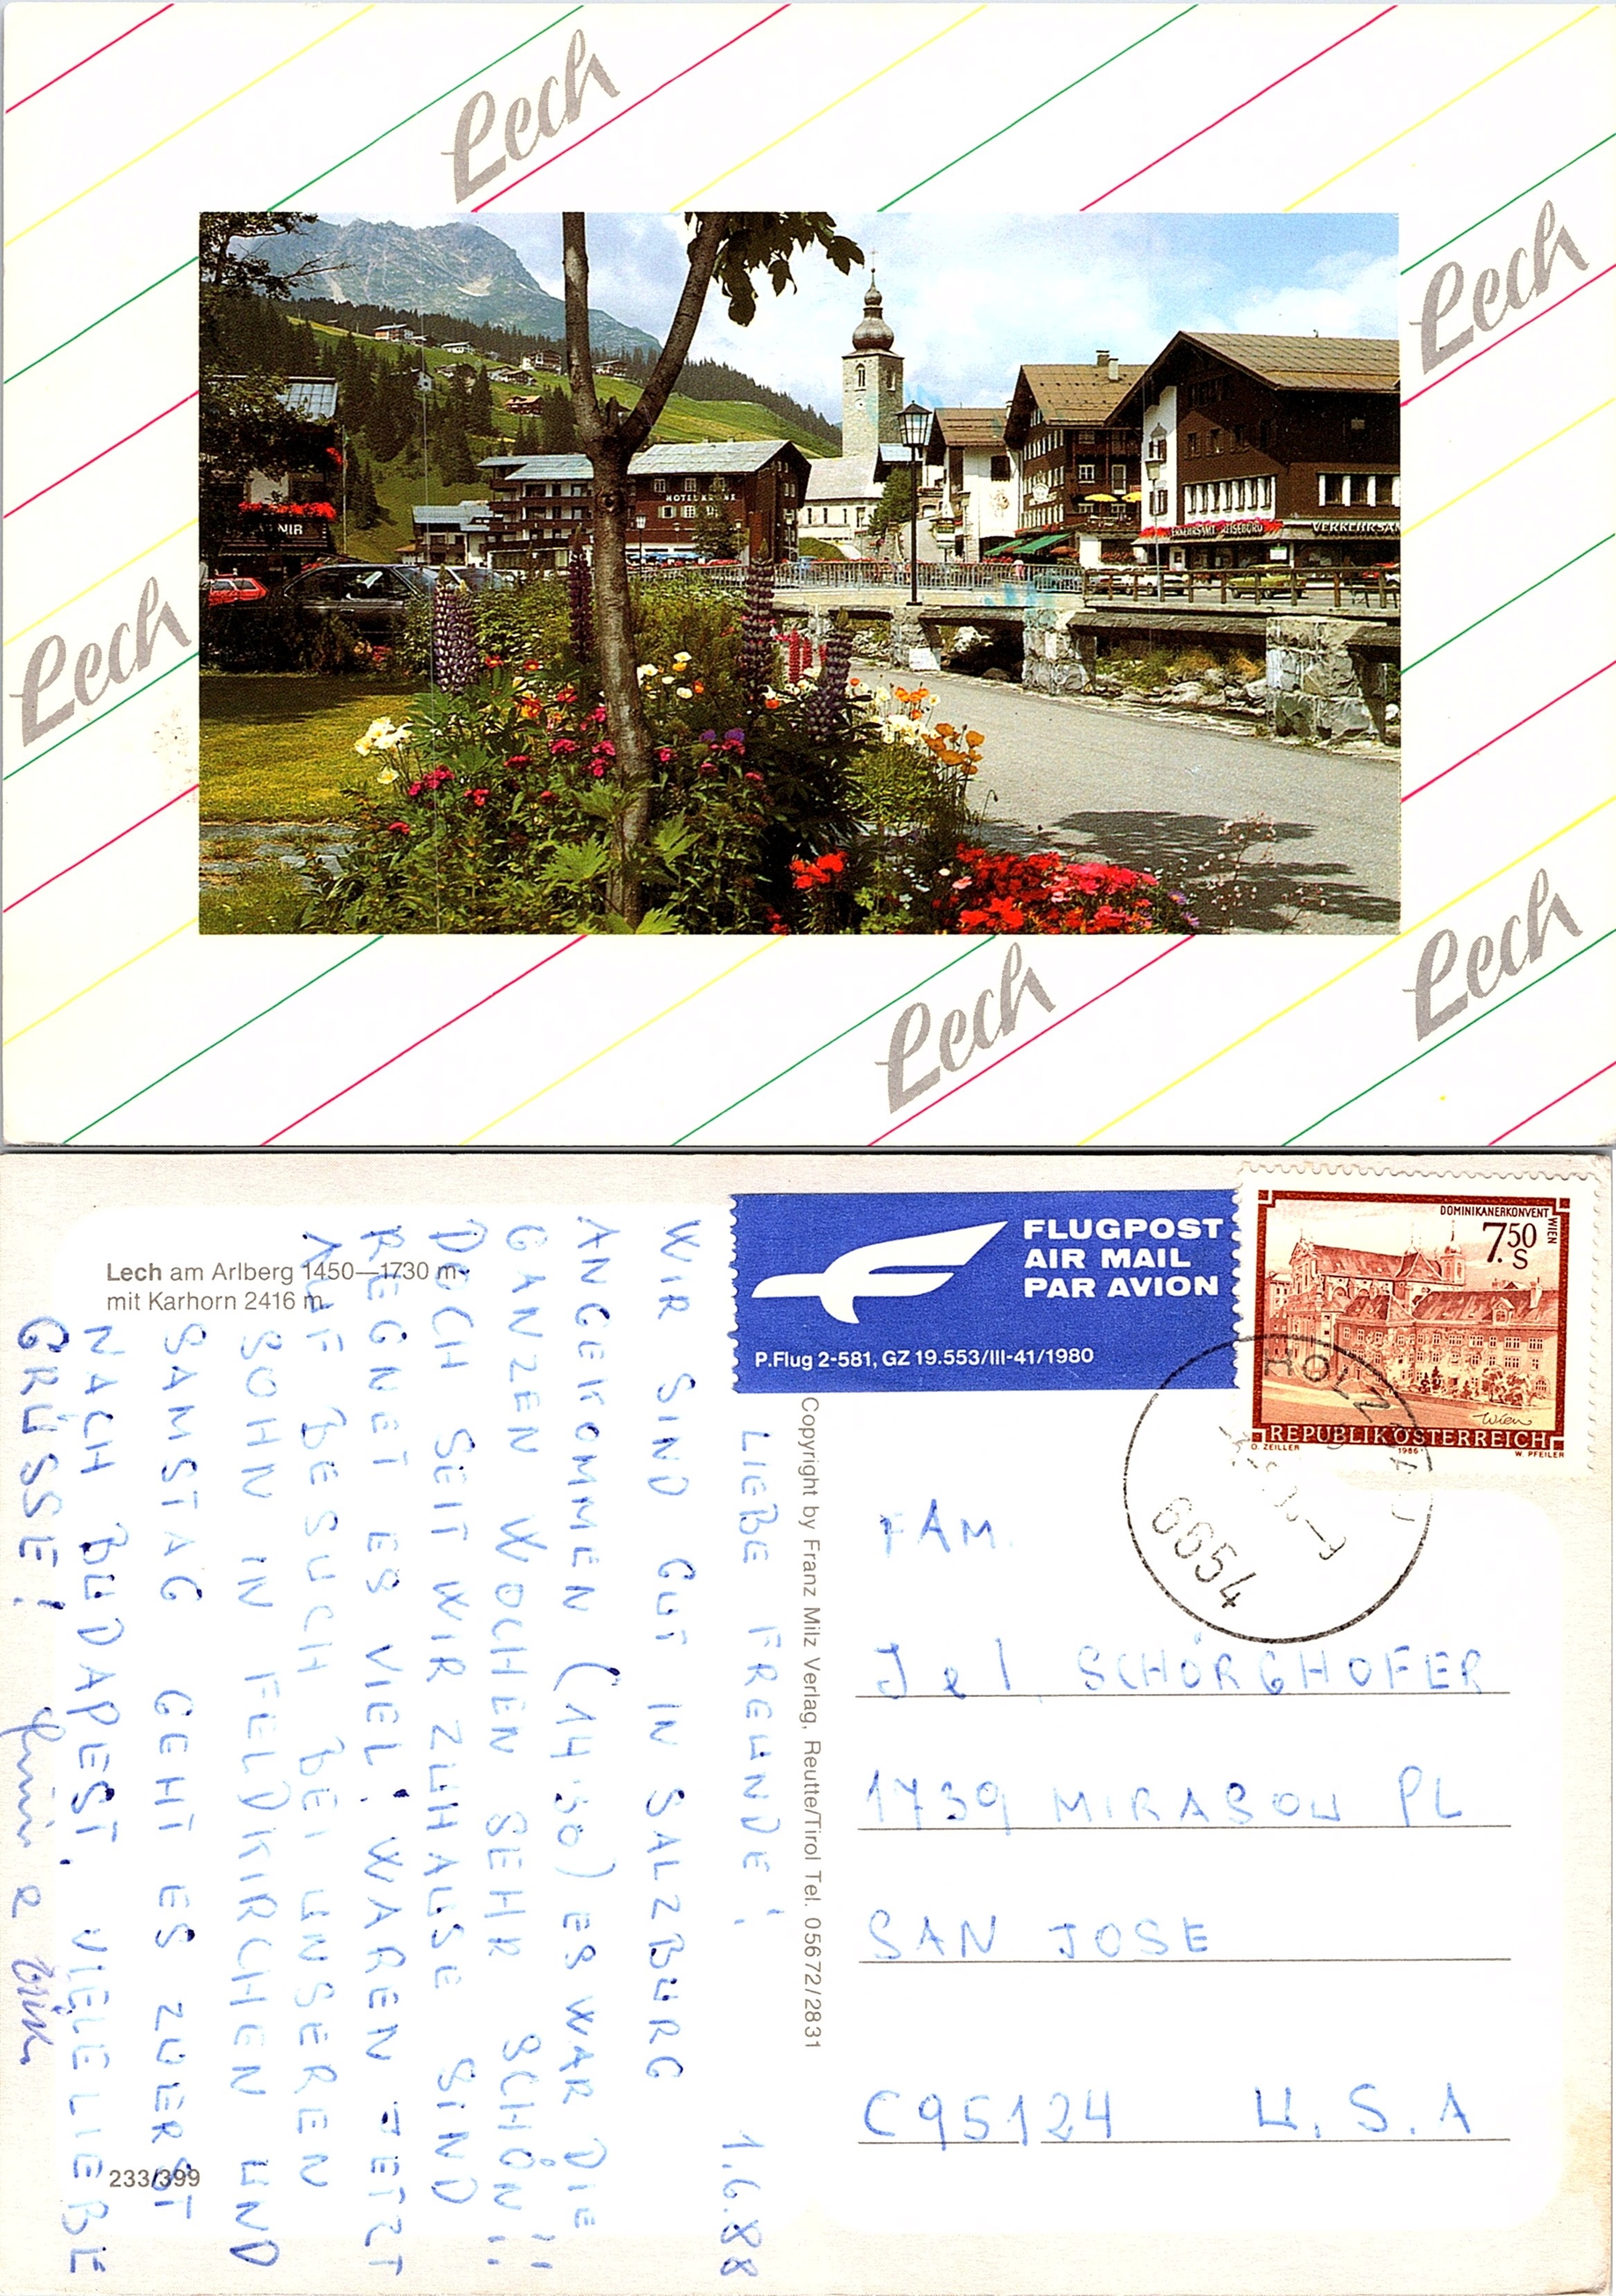 Lech
Lech
Lech
Lech
Lech
HOTEL KRONE
VERKEHRSAMT REISEBÜRO
VERKEHRSAM
Lech am Arlberg 1450—1730 m
mit Karhorn 2416 m
FLUGPOST
AIR MAIL
PAR AVION
P.Flug 2-581, GZ 19.553/III-41/1980
DOMINIKANERKONVENT
WIEN
7.50
S
Wien
REPUBLIK ÖSTERREICH
O. ZEILLER 1986 W. PFEILER
HOLZGAU
6654
1.6.88
LIEBE FREUNDE!
WIR SIND GUT IN SALZBURG
ANGEKOMMEN (14·30) ES WAR DIE
GANZEN WOCHEN SEHR SCHÖN!!
DOCH SEIT WIR ZUHAUSE SIND
REGNET ES VIEL. WAREN JETZT
AUF BESUCH BEI UNSEREN
SOHN IN FELDKIRCHEN UND
SAMSTAG GEHT ES ZUERST
NACH BUDAPEST. VIELE LIEBE
GRÜSSE!
Copyright by Franz Milz Verlag, Reutte/Tirol Tel. 05672/2831
FAM.
J e l. SCHÖRGHOFER
1739 MIRASOU PL
SAN JOSE
C95124 U.S.A
233/399